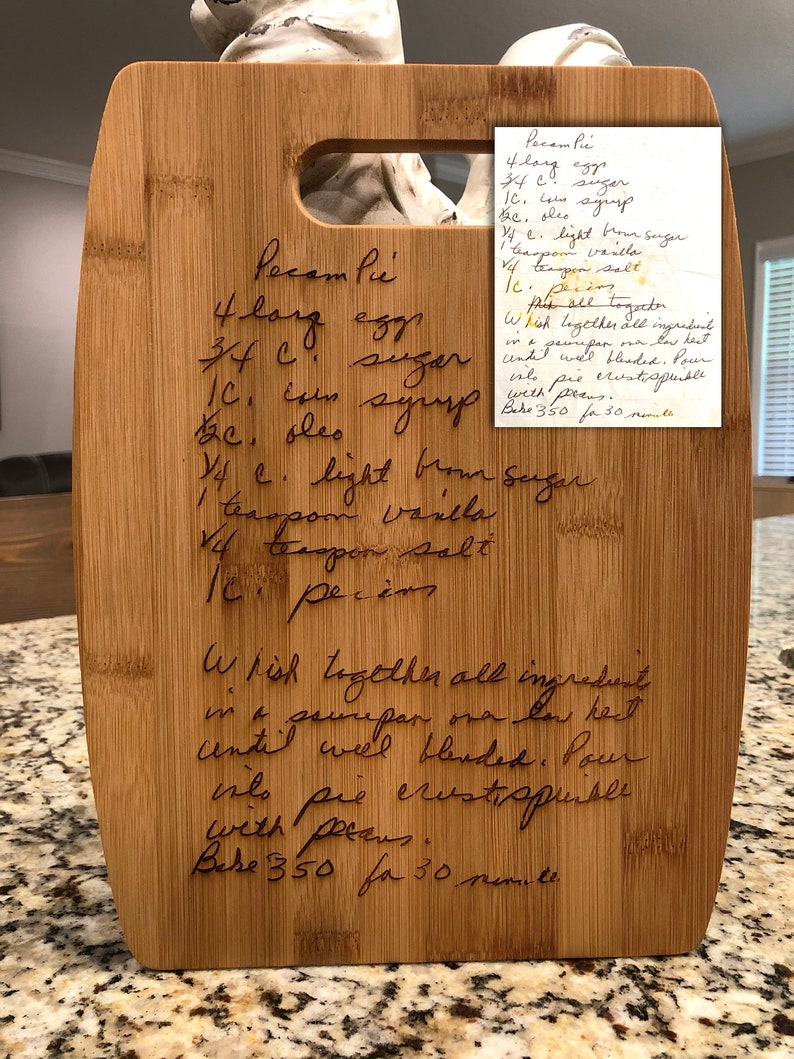 Pecam Pie
4 larg eggs
3/4 c. sugar
1c. corn syrup
1/2c. oleo
1/4 c. light brown sugar
1 teaspoon vanilla
1/4 teaspon salt
1c. pecans
Whish together all ingredients
in a saucepan over low heat
until well blended. Pour
into pie crust, sprinkle
with pecans.
Bake 350 for 30 minutes
Pecam Pie
4 larg eggs
3/4 c. sugar
1c. corn syrup
1/2c. oleo
1/4 c. light brown sugar
1 teaspoon vanilla
1/4 teaspon salt
1c. pecans
Mix all together
Whish together all ingredients
in a saucepan over low heat
until well blended. Pour
into pie crust, sprinkle
with pecans.
Bake 350 for 30 minutes